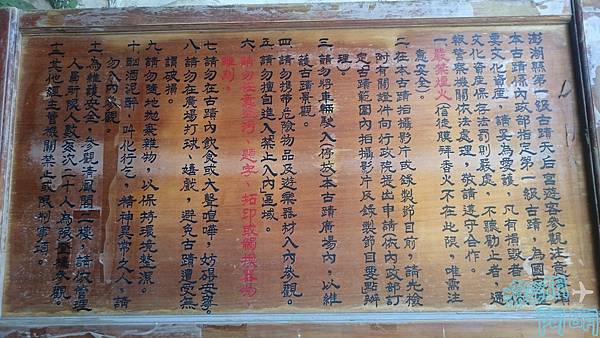 澎湖縣第一級古蹟天后宮遊客參觀注意
本古蹟係內政部指定第一級古蹟,為國
要文化資產,請妥為愛護,凡有損毀者
文化資產保存法罰則嚴處,不聽勸止者,通
報警察機關依法處理,敬請遵守合作。
一嚴禁煙火(信徒膜拜香火不在此限,唯需注
意安全)。
二在本古蹟拍攝影片或錄製節目前,請先檢
附有關證件向行政院提出申請依內政部訂
定古蹟範圍內拍攝影片及錄製節目要點辦
理)
三請勿將車輛駛入(停放本古蹟廣場內,以維
護古蹟景觀。
四請勿携帶危險物品及遊樂器材入內參觀。
五請勿擅自進入禁止入內區域。
六、請勿在
雕刻。
七請勿在古蹟內飲食或大聲喧嘩,妨碍安寧。
八請勿在廣場打球、嬉戲,避免古蹟遭受無
謂破損。
九請勿隨地拋棄雜物,以保持環境整潔。
十酗酒泥醉,叫化行乞,精神異常之人,請
勿入內參觀。
土為維護安全,參觀清風閣二樓,請依管理
人員所限人數每次二十人為限
主其他經主管機關禁止或限制事項。